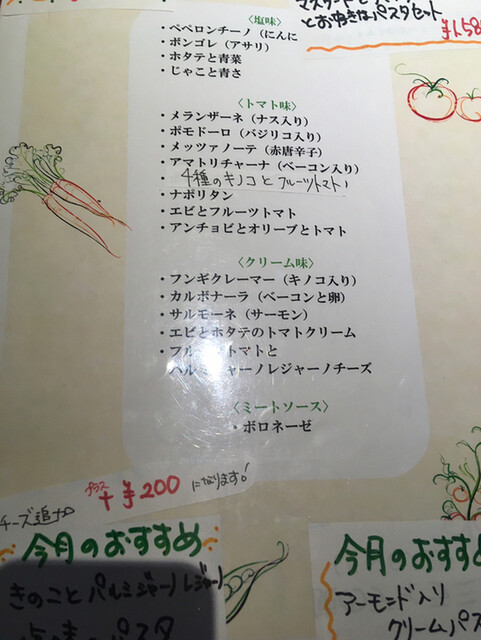 マスタードと
とお好きはパスタセット
¥1,58
〈塩味〉
・ペペロンチーノ（にんに
・ボンゴレ（アサリ）
・ホタテと青菜
・じゃこと青さ
〈トマト味〉
・メランザーネ（ナス入り）
・ポモドーロ（バジリコ入り）
・メッツァノーテ（赤唐辛子）
・アマトリチャーナ（ベーコン入り）
・4種のキノコとフルーツトマト
・ナポリタン
・エビとフルーツトマト
・アンチョビとオリーブとトマト
〈クリーム味〉
・フンギクレーマー（キノコ入り）
・カルボナーラ（ベーコンと卵）
・サルモーネ（サーモン）
・エビとホタテのトマトクリーム
・フルーツトマトと
パルミジャーノレジャーノチーズ
〈ミートソース〉
・ボロネーゼ
チーズ追加 プラス +¥200 になります!
今月のおすすめ
きのことパルミジャーノレジャーノ
パスタ
今月のおすすめ
アーモンド入り
クリームパス